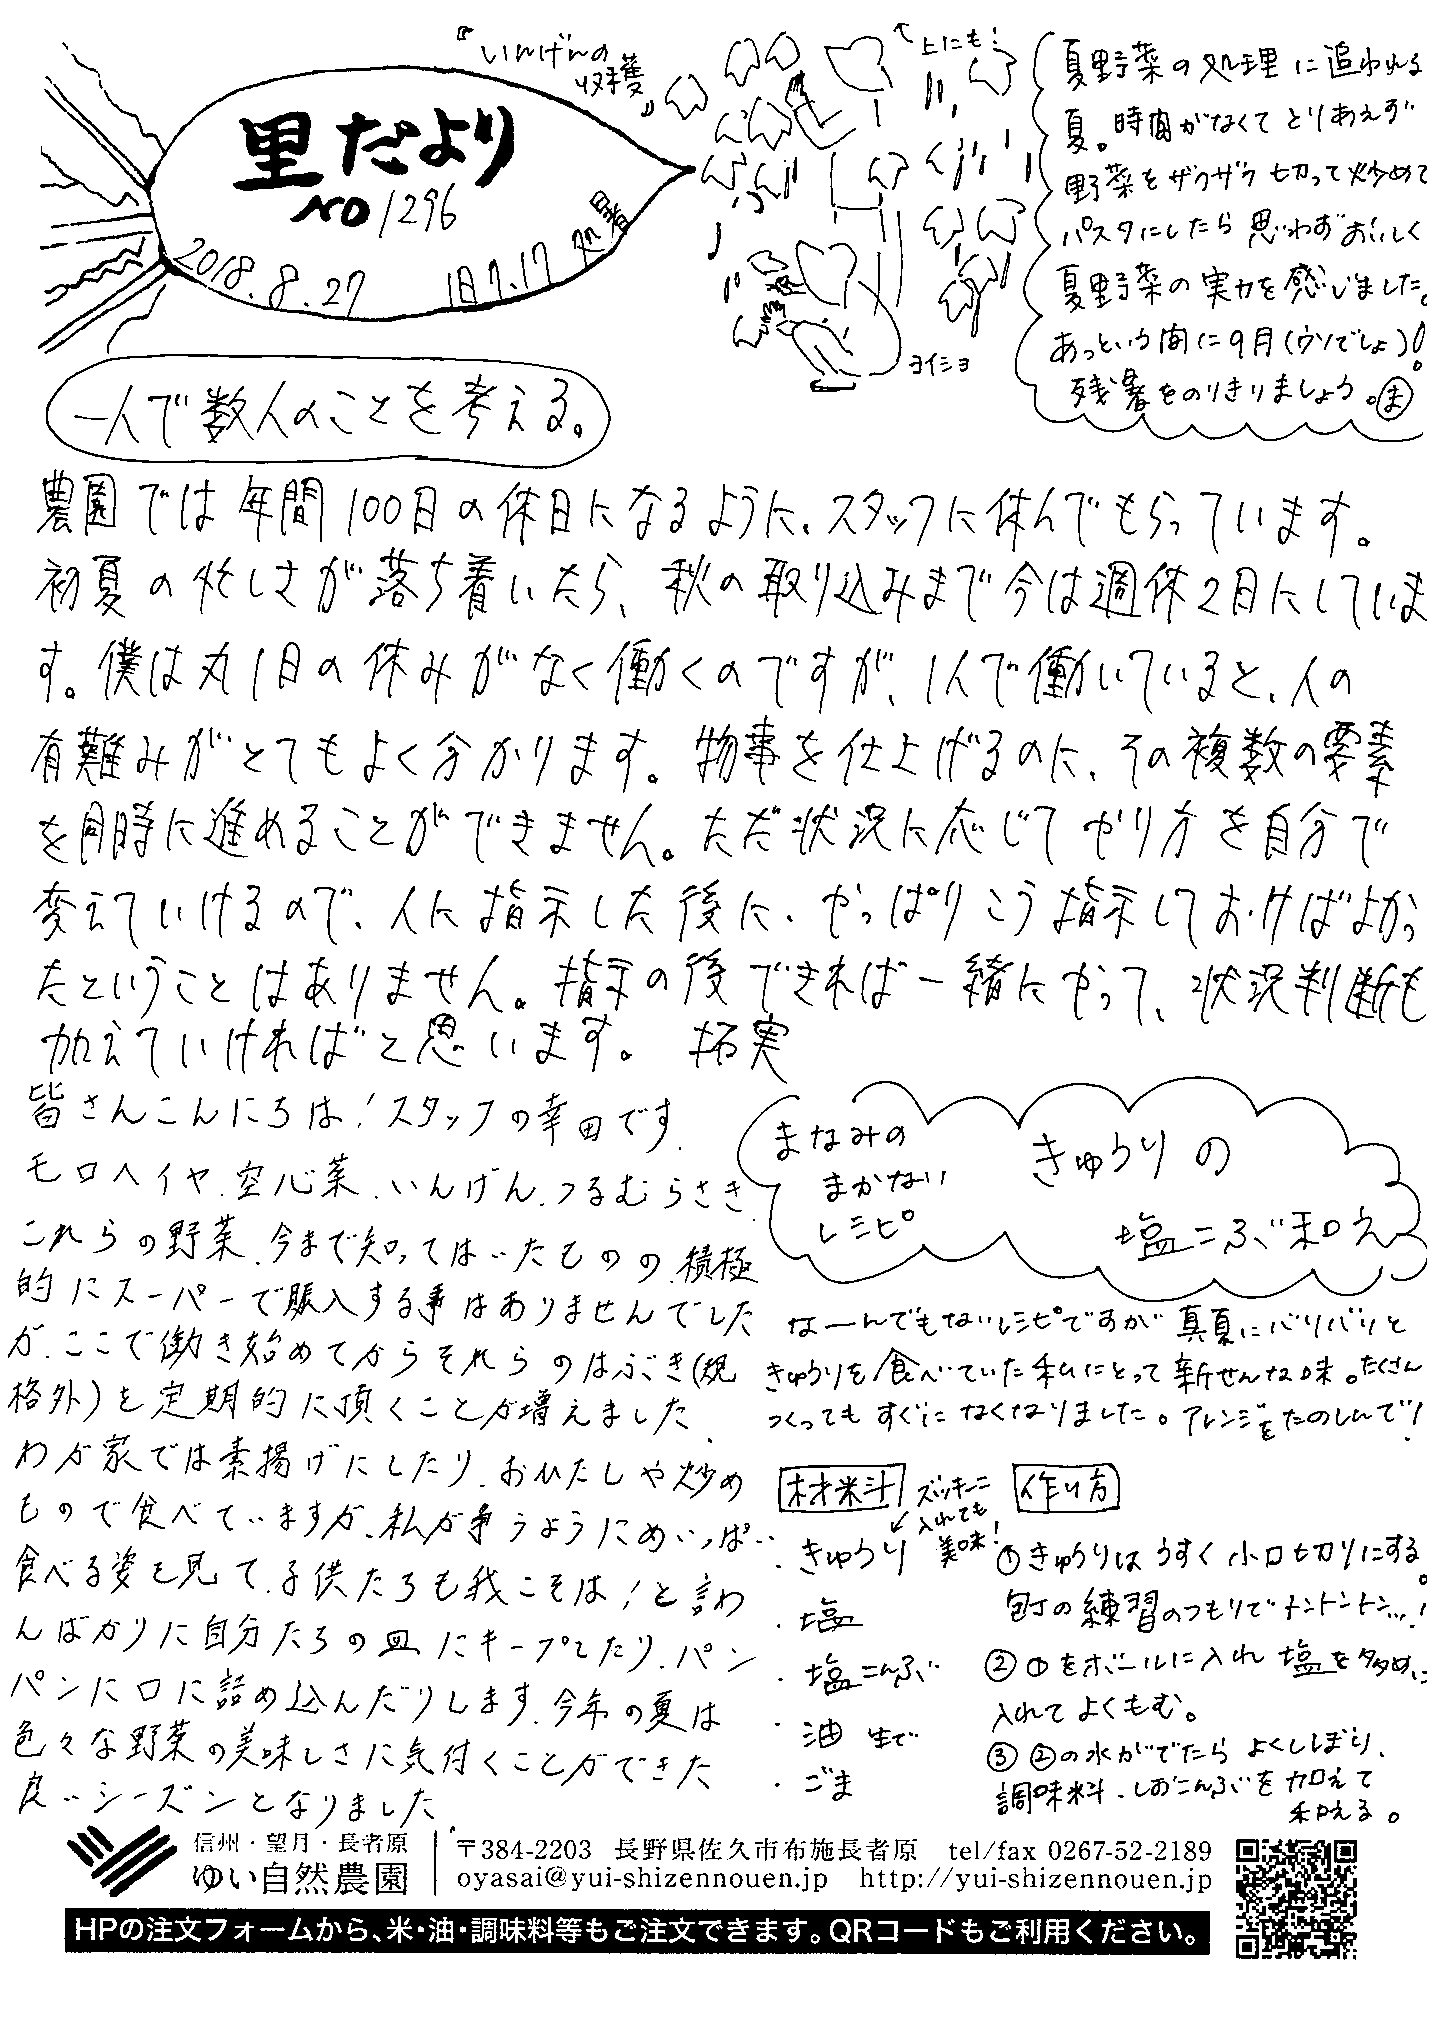 『いんげんの
収穫』
↑上にも!
里だより
NO 1296
2018.8.27 旧7.17 処暑
ヨイショ
夏野菜の処理に追われる
夏。時間がなくてとりあえず
野菜をザクザク切って炒めて
パスタにしたら思わずおいしく
夏野菜の実力を感じました。
あっという間に9月(ウソでしょ)!
残暑をのりきりましょう。ま
一人で数人のことを考える。
農園では年間100日の休日になるように、スタッフに休んでもらっています。
初夏の忙しさが落ち着いたら、秋の取り込みまで今は週休2日にしていま
す。僕は丸1日の休みがなく働くのですが、1人で働いていると、人の
有難みがとてもよく分かります。物事を仕上げるのに、その複数の要素
を同時に進めることができません。ただ状況に応じてやり方を自分で
変えていけるので、人に指示した後に、やっぱりこう指示しておけばよかっ
たということはありません。指示の後できれば一緒にやって、状況判断も
加えていければと思います。 拓実
皆さんこんにちは!スタッフの幸田です.
モロヘイヤ.空心菜.いんげん.つるむらさき.
これらの野菜.今まで知ってはいたものの.積極
的にスーパーで購入する事はありませんでした
が.ここで働き始めてからそれらのはぶき(規
格外)を定期的に頂くことが増えました.
わが家では素揚げにしたり.おひたしや炒め
もので食べていますが、私が争うようにめいっぱい
食べる姿を見て.子供たちも我こそは!と言わ
んばかりに自分たちの皿にキープしたり.パン
パンに口に詰め込んだりします.今年の夏は
色々な野菜の美味しさに気付くことができた
良いシーズンとなりました.
まなみの
まかない
レシピ
きゅうりの
塩こぶ和え
なーんでもないレシピですが真夏にバリバリと
きゅうりを食べていた私にとって新せんな味。たくさん
つくってもすぐになくなりました。アレンジをたのしんで!
材料
ズッキーニ
入れても
美味!
・きゅうり
・塩
・塩こんぶ
・油 生で
・ごま
作り方
①きゅうりはうすく小口切りにする。
包丁の練習のつもりでトントントン…!
②①をボールに入れ塩を多めに
入れてよくもむ。
③②の水がでたらよくしぼり、
調味料、しおこんぶを加えて
和える。
信州・望月・長者原
ゆい自然農園
〒384-2203 長野県佐久市布施長者原 tel/fax 0267-52-2189
oyasai@yui-shizennouen.jp http://yui-shizennouen.jp
HPの注文フォームから、米・油・調味料等もご注文できます。QRコードもご利用ください。